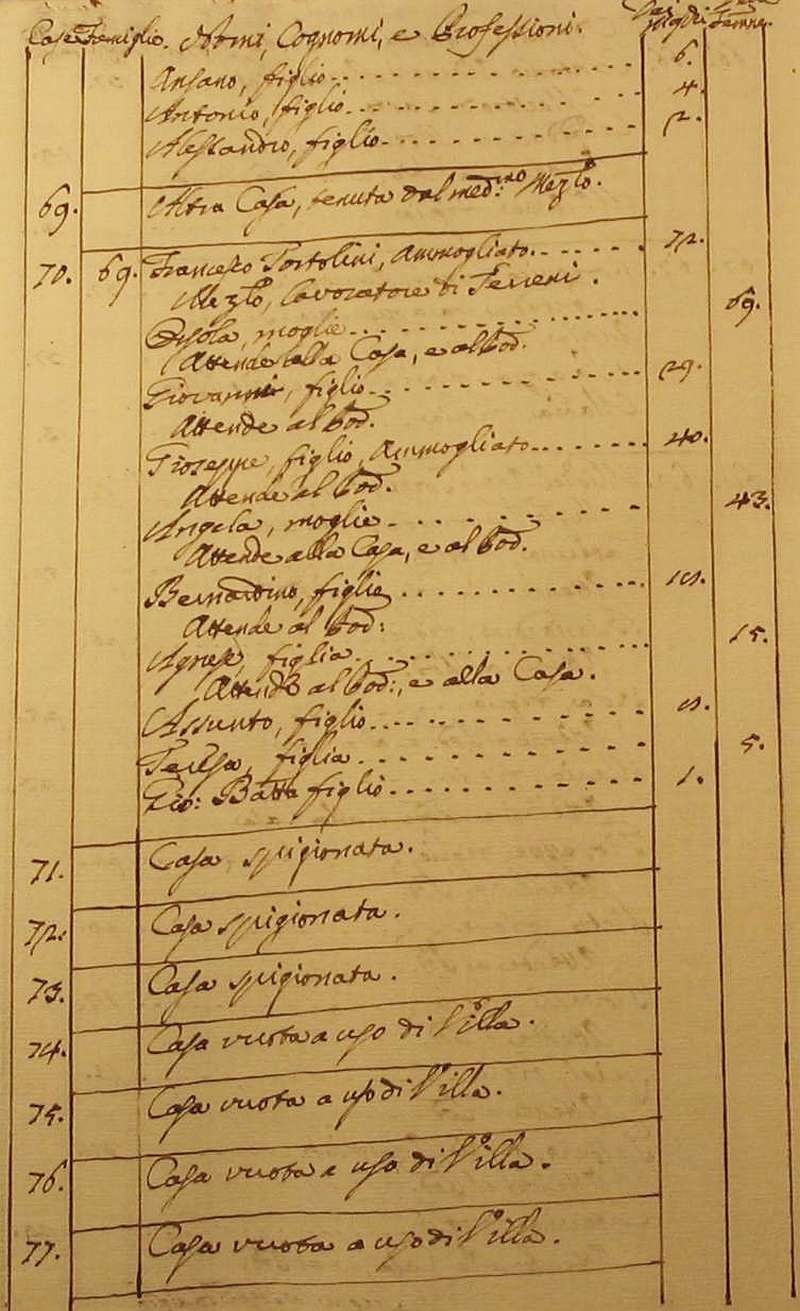 Case Famiglie. Nomi, Cognomi, e Professioni. Femine.
Ansano, figlio 6.
Antonio, figlio 4.
Alessandro, figlio 2.
69. Altra Casa, tenuta dal med:mo Mezlo.
70. 69. Francesco Portolini, Ammogliato. 72.
Mezlo, lavoratore di Terreni.
moglie 69.
Attende alla Casa, e al Pod.
Giovanni, figlio 29.
Attende al Pod.
Gioseppe, figlio, Ammogliato 40.
Attende al Pod.
Angela, moglie 43.
Attende alla Casa, e al Pod.
Bernardino, figlio
Attende al Pod:
Agnese, figlia 15.
Attende al Pod:, e alla Casa.
Assunto, figlio
Teresa, figlia 5.
Gio: Batta figlio 1.
71. Casa spigionata.
72. Casa spigionata.
73. Casa spigionata.
74. Casa vuota a uso di Villa.
75. Casa vuota a uso di Villa.
76. Casa vuota a uso di Villa.
77. Casa vuota a uso di Villa.